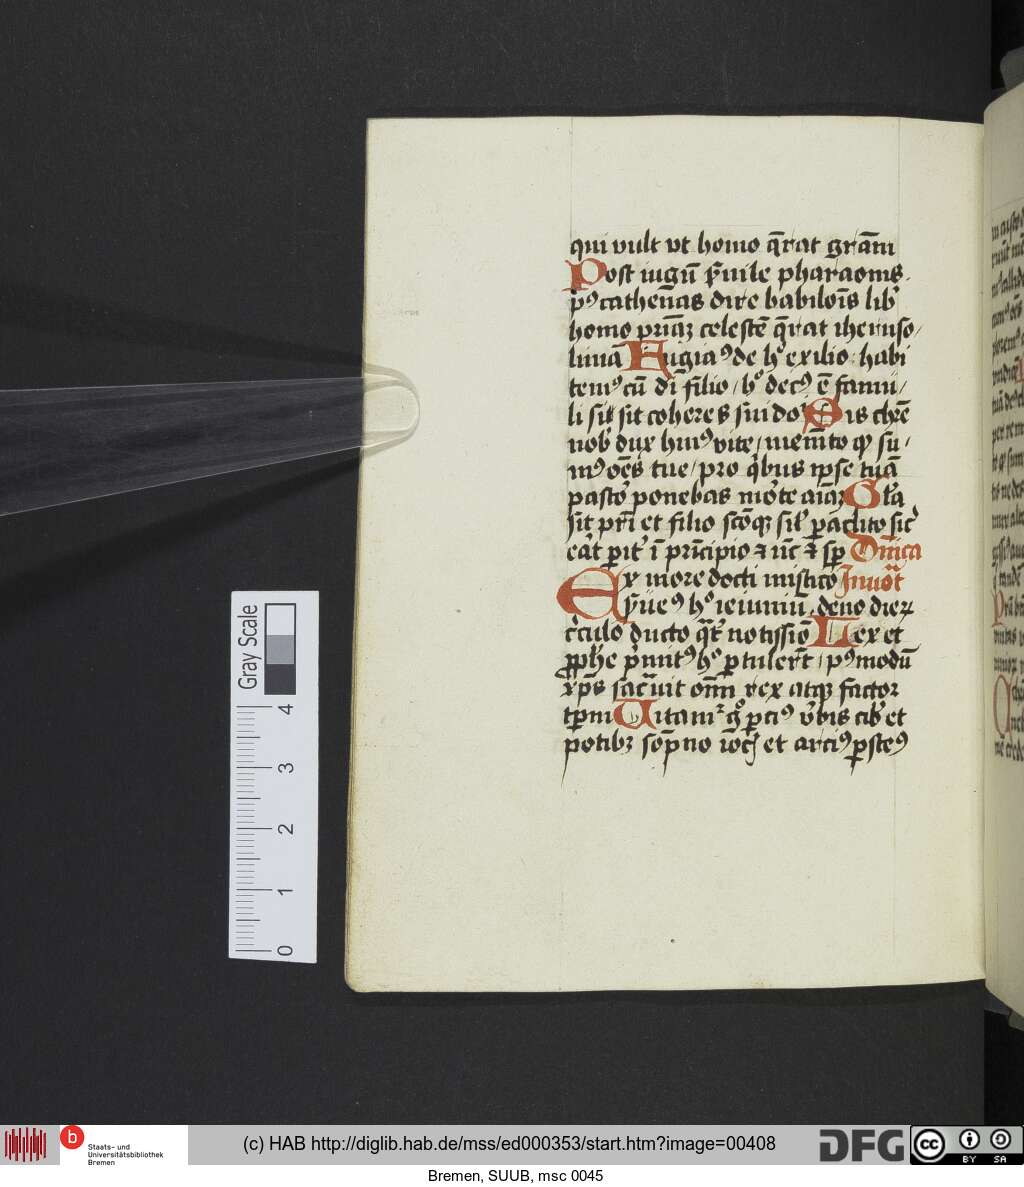 qui vult vt homo q̄rat gr̄am
Post iugū ẜuile pharaonis
pꝰ cathen̄as dire babilo̅is lib̾
homo priā celestē q̄rat iheruso/
limā Eugiaꝰ de hꝰ exilio habi
temꝰ cū di̅ filio / hꝰ decꝰ ē famu/
li si sit coheres sui do Sis chr̄e
nob̾ dux huiꝰ vite / mem̄to qꝫ su/
mꝰ oēs tue / pro q̾bus ip̄se tuā
pastoꝰ ponebas mo̾te aia Gl̾a
sit pr̄i et filio sc̄oqꝫ sil̾ pāclito sic̾
eāt pit̾ i̅ pr̄cipio ⁊ ūc ⁊ sp̄ Dn̄ica
Ex more docti mistico Inuo̅t
ẜueꝰ hꝰ ieiuniu, deno dieꝝ
c̾culo ducto q̄t notissiō Lex et
ꝓphe p̾mitꝰ hꝰ ꝓtuler̄t / pꝰ modū
xp̄s sac̾uit om̄ rex atqꝫ factor
tp̄m Utamꝰ g̾ ꝑciꝰ v̾bis cib̾ et
potibꝫ sop̄no ioc̾ et arciꝰ ꝑsteꝰ
Gray Scale
0 1 2 3 4
b
Staats- und
Universitätsbibliothek
Bremen
(c) HAB http://diglib.hab.de/mss/ed000353/start.htm?image=00408
DFG
cc BY SA
Bremen, SUUB, msc 0045